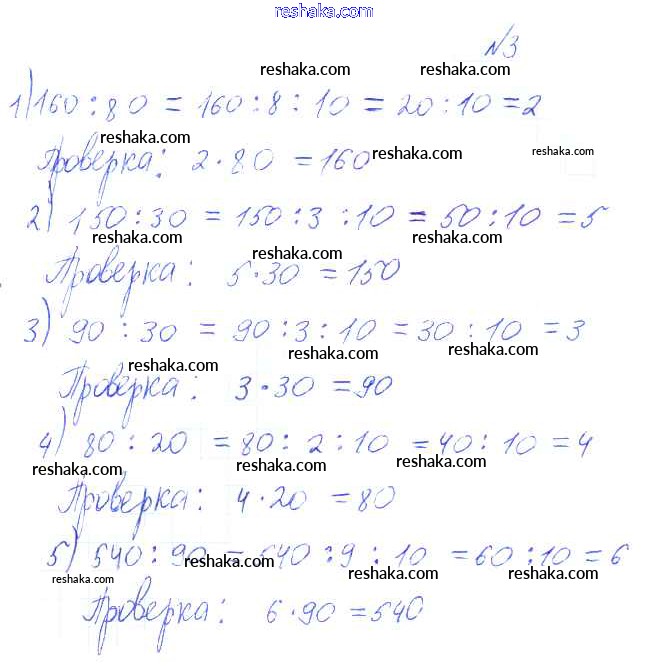 reshaka.com
№3
reshaka.com reshaka.com
1) 160 : 80 = 160 : 8 : 10 = 20 : 10 = 2
reshaka.com reshaka.com reshaka.com
Проверка: 2 · 80 = 160
2) 150 : 30 = 150 : 3 : 10 = 50 : 10 = 5
reshaka.com reshaka.com reshaka.com
Проверка: 5 · 30 = 150
3) 90 : 30 = 90 : 3 : 10 = 30 : 10 = 3
reshaka.com reshaka.com reshaka.com
Проверка: 3 · 30 = 90
4) 80 : 20 = 80 : 2 : 10 = 40 : 10 = 4
reshaka.com reshaka.com reshaka.com
Проверка: 4 · 20 = 80
5) 540 : 90 = 540 : 9 : 10 = 60 : 10 = 6
reshaka.com reshaka.com reshaka.com reshaka.com
Проверка: 6 · 90 = 540